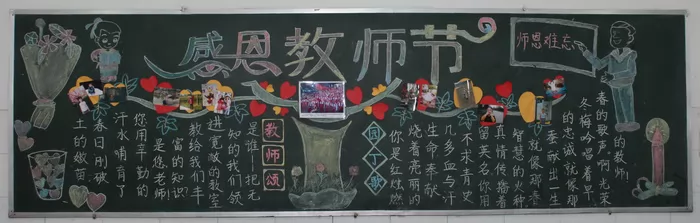 感恩教师节
师恩难忘
教师颂
是谁—把无
知的我们领
进宽敞的教室
教给我们丰
富的知识?
是您老师!
您用辛勤的
汗水哺育了
春日刚破
土的嫩苗
园丁歌
你是红烛燃
烧着亮丽的
生命奉献
几多血与汗
不求青史
留英名你用
真情传播着
智慧的火种
就像那春
蚕献出一生
的忠诚就像那
冬梅吟唱着早
春的歌声啊光荣
的教师!